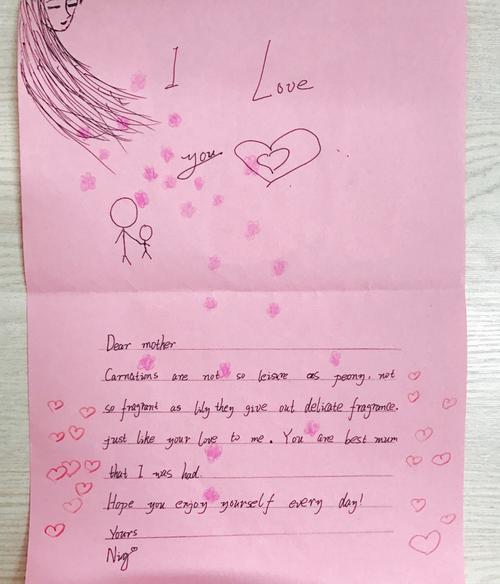 I Love
you
Dear mother
Carnations are not so leisure as peony, not
so fragrant as lily they give out delicate fragrance.
just like your love to me. You are best mum
that I was had.
Hope you enjoy yourself every day!
Yours